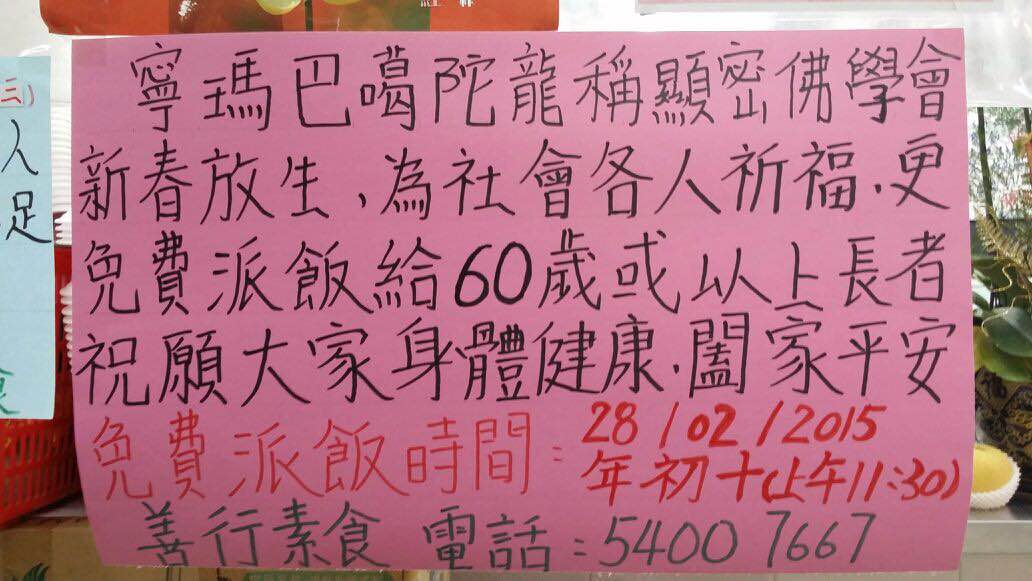 寧瑪巴噶陀龍稱顯密佛學會
新春放生、為社會各人祈福.更
免費派飯給60歲或以上長者
祝願大家身體健康.闔家平安
免費派飯時間：28/02/2015
年初十(上午11:30)
善行素食 電話：5400 7667
三)
人
足
食